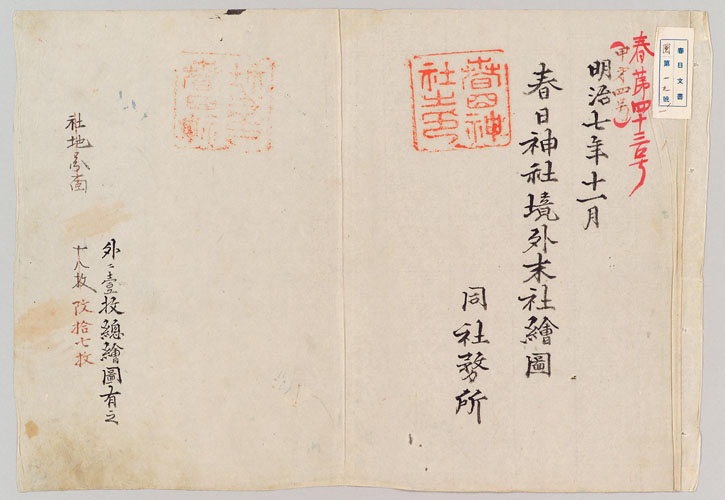 春日文書
第一九號
春第四十三号
(甲才四号)
明治七年十一月
春日神社境外末社繪圖
同社務所
春日神社之印
外ニ壹枚總繪圖有之
十八枚 改拾七枚
社地